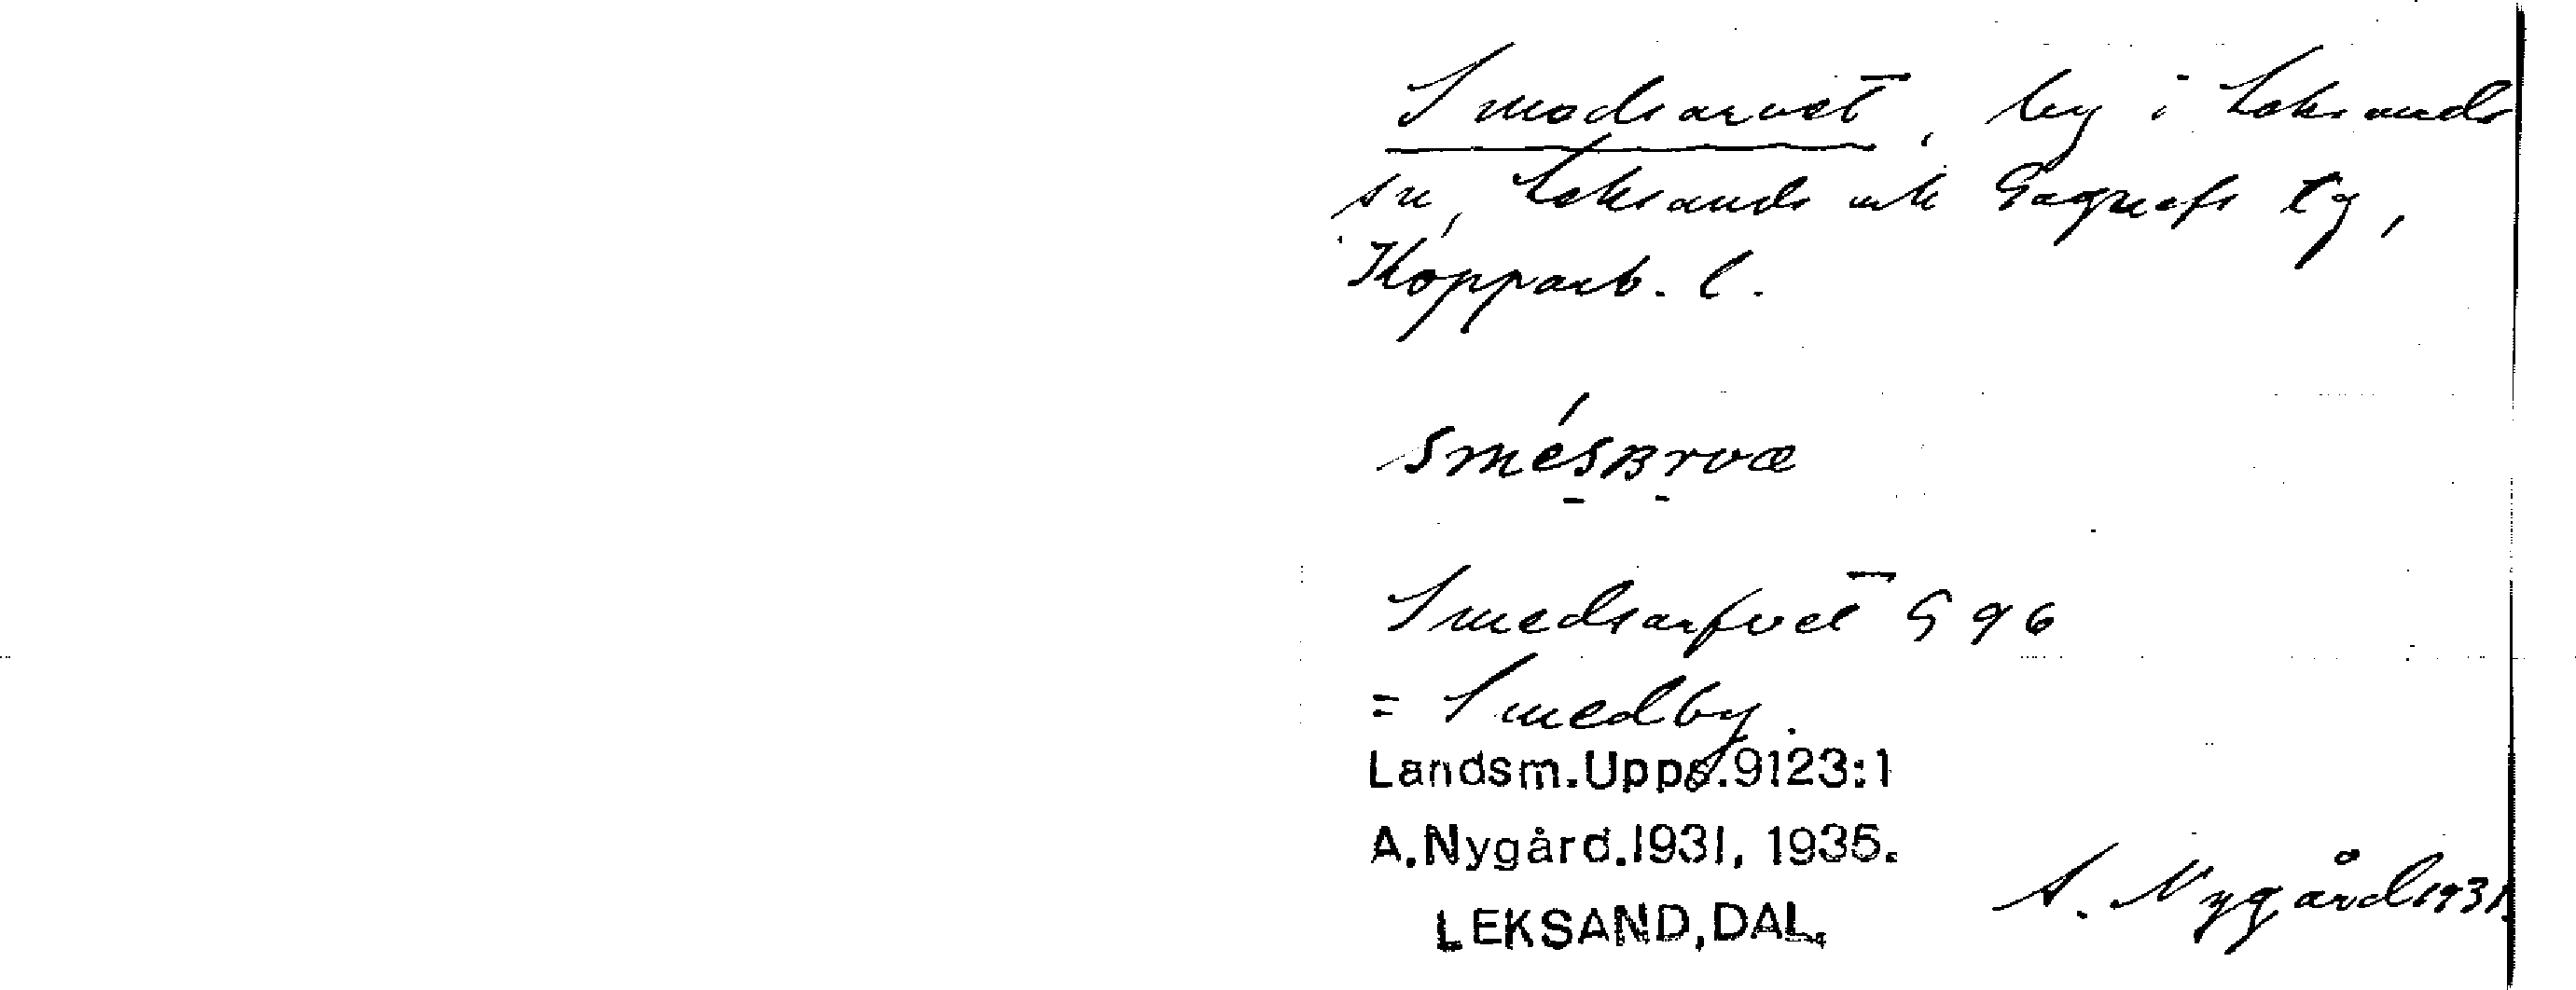 Smedsarvet, by i Leksands
sn, Leksands och Gagnefs tg,
Kopparb. l.
smésʙrvæ
Smedsarfvet G 96
= Smedby.
Landsm.Upps.9123:1
A.Nygård.1931, 1935.
LEKSAND,DAL.
A. Nygård 1931.